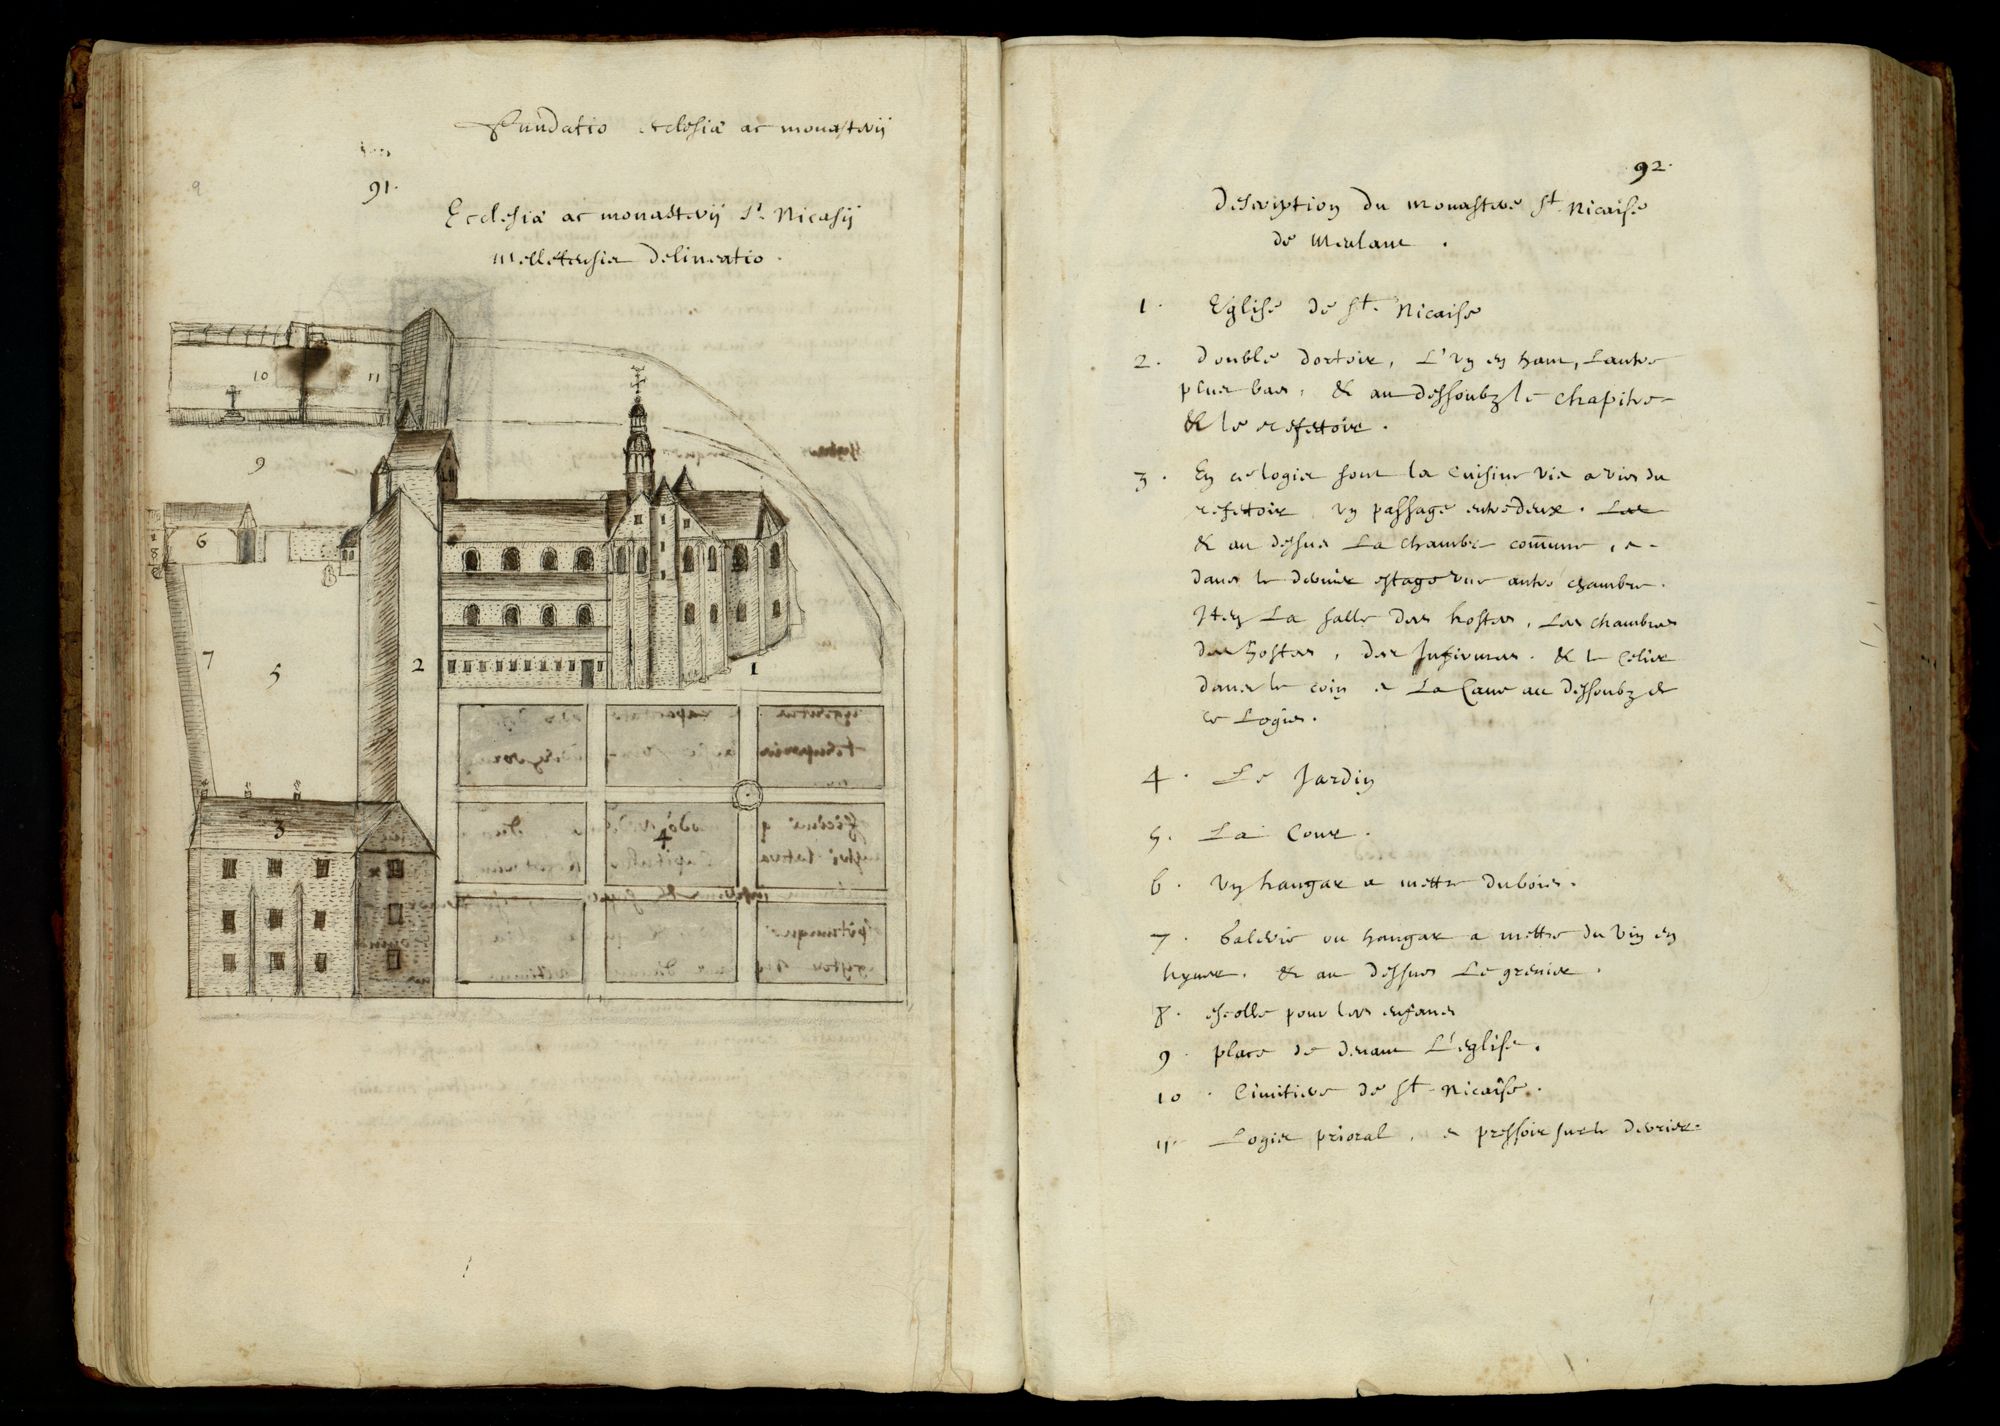 Fundatio ecclesiæ ac monasterij
91.
Ecclesiæ ac monasterij Sti Nicasij
Melletensis Delineatio.
10 11
9
8
6
7 5 2 1
3 4
92.
Description du monastere St. Nicaise
de Meulanc.
1. Eglise de St. Nicaise
2. Double dortoir, L'un en hault, L'autre
plus bas, & au dessoubz le chapitre
& le refectoir.
3. En ce logis sont la cuisine vis a vis du
refectoir un passage entredeux. Las
& au dessus La chambre commune, e
dans le dernier estage une autre chambre.
Item La salle des hostes, Les chambres
des hostes, des Infirmes. & le Celier
dans le coin e La Cave au dessoubz de
ce Logis.
4. Le Jardin
5. La Cour.
6. Un hangar a mettre du bois.
7. Galerie ou hangar a mettre du vin en
hyver. & au dessus Le grenier.
8. escolle pour les enfans
9. place de devant L'eglise.
10. Cimitiere de St Nicaise.
11. Logis prioral, e pressoir sur le derrier.